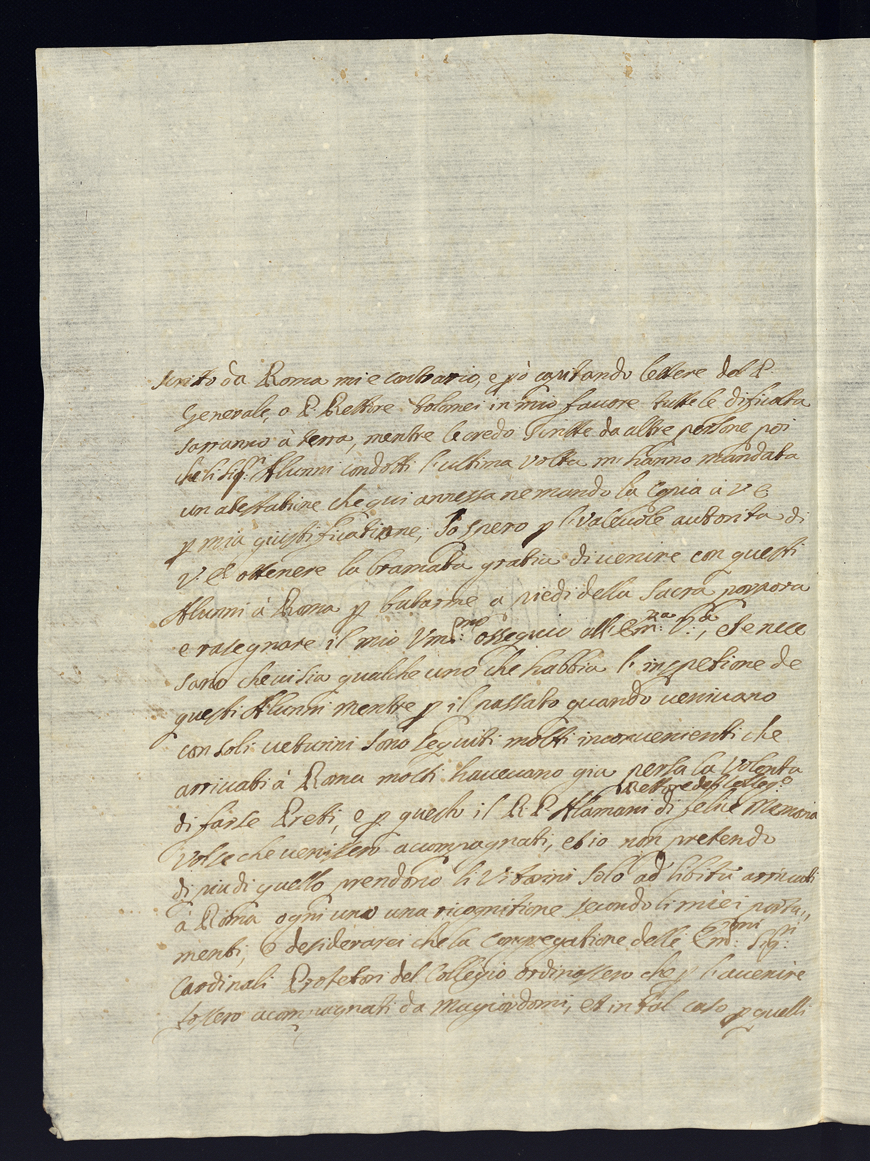 scritto da Roma mi e contrario, e pò capitando lettere dal P.
Generale, o P. Rettore Tolomei in mio favore tutte le dificolta
sarranno à terra, mentre le credo scritte da altre persone poi
che li Sig.ri Alunni condotti l'ultima volta m'hanno mandata
un atestatione che qui annessa ne mando la Copia a V E
p mia giustificatione; Io spero p l'valevole autorita di
V. E. ottenere la bramata gratia di venire con questi
Alunni à Roma p butarme a piedi della Sacra porpora
e rasegnare il mio Um.mo ossequio all Em.za V.ra, e se nece
sario che vi sia qualche uno che habbia l'inspetione de
questi Alunni mentre p il passato quando venivano
con soli veturini sono seguiti molti inconvenienti che
arrivati à Roma molti havevano gia persa la volonta
Rettore del Colleg.o
di farse Preti, e p questo il R. P. Alamani di felice memoria
volse che venissero acompagnati, et io non pretendo
di piu di quello prendono li Viturini solo ad libitũ arrivati
à Roma ogni uno una ricognitione secondo li miei porta,,
menti, o desiderarei che la Congregatione delle Em.mi Sig.ri
Cardinali Protetori del Collegio ordinassero che p l'avenire
fossero acompagnati da magiordomi, et in tal caso p quelli